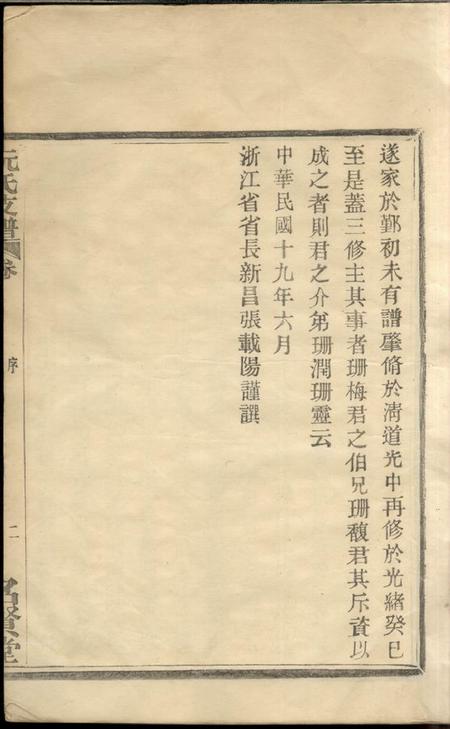 遂家於鄞初未有譜肇脩於淸道光中再修於光緒癸巳
至是蓋三修主其事者珊梅君之伯兄珊馥君其斥資以
成之者則君之介弟珊潤珊靈云
中華民國十九年六月
浙江省省長新昌張載陽謹譔
阮氏支譜
卷
序
二
名賢堂